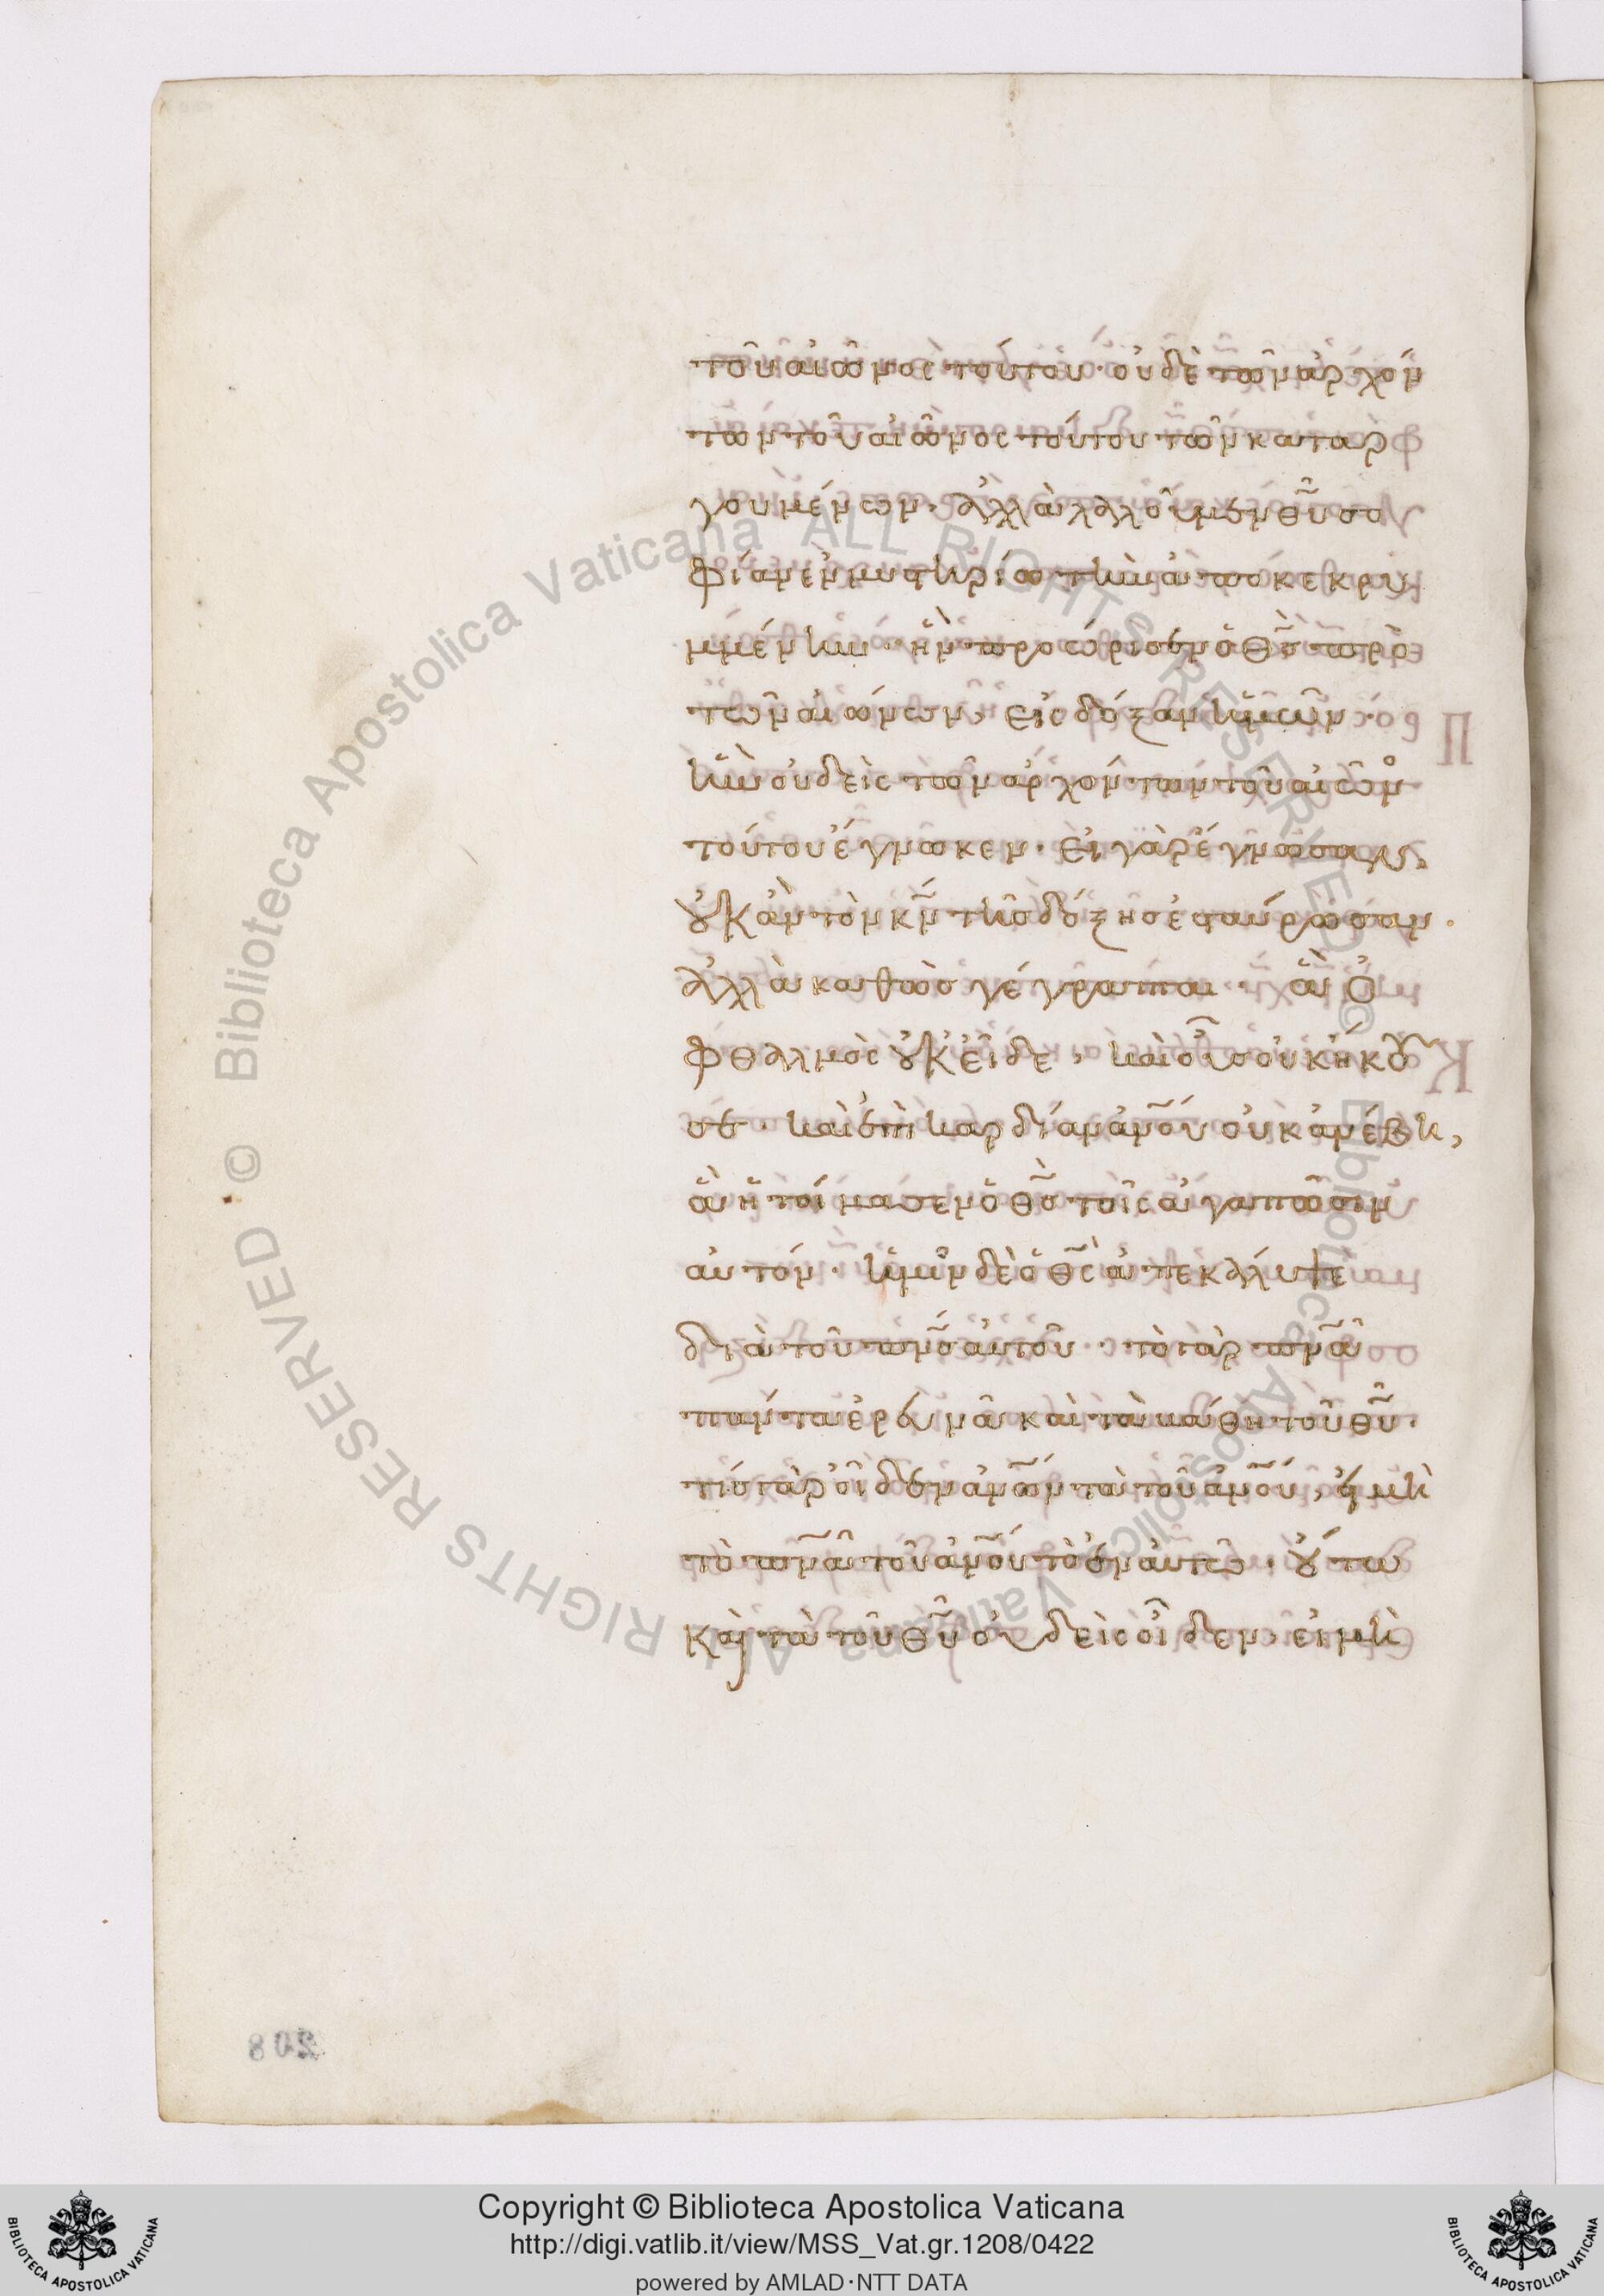 τοῦ αἰῶνος τούτου· οὐδὲ τῶν ἀρχόν
των τοῦ αἰῶνος τούτου τῶν καταρ
γουμένων· ἀλλὰ λαλοῦμεν θ̅υ̅ σο
φίαν ἐν μυστηρίω τὴν ἀποκεκρυ
μμένην· ἣν προώρισεν ὁ θ̅ς̅ πρὸ
τῶν αἰώνων, εἰς δόξαν ἡμῶν·
ἣν οὐδεὶς τῶν ἀρχόντων τοῦ αἰῶνο
τούτου ἔγνωκεν· εἰ γὰρ ἔγνωσαν,
οὐκ ἂν τὸν κ̅ν̅ τῆς δόξης ἐσταύρωσαν·
ἀλλὰ καθὼς γέγραπται· ἃ ὀ
φθαλμὸς οὐκ εἶδε, καὶ οὖς οὐκ ἤκου
σε· καὶ ἐπὶ καρδίαν α̅ν̅ο̅υ̅ οὐκ ἀνέβη,
ἃ ἡτοίμασεν ὁ θ̅ς̅ τοῖς ἀγαπῶσιν
αὐτόν· ἡμῖν δὲ ὁ θ̅ς̅ ἀπεκάλυψε
διὰ τοῦ π̅ν̅ς̅ αὐτοῦ· τὸ γὰρ π̅ν̅α̅
πάντα ἐρευνᾶ καὶ τὰ βάθη τοῦ θ̅υ̅·
τίς γὰρ οἶδεν α̅ν̅ω̅ν̅ τὰ τοῦ α̅ν̅ο̅υ̅, εἰ μὴ
τὸ π̅ν̅α̅ τοῦ α̅ν̅ο̅υ̅ τὸ ἐν αὐτῶ· οὕτω
καὶ τὰ τοῦ θ̅υ̅ οὐδεὶς οἶδεν, εἰ μὴ
208
Copyright © Biblioteca Apostolica Vaticana
http://digi.vatlib.it/view/MSS_Vat.gr.1208/0422
powered by AMLAD·NTT DATA
BIBLIOTECA APOSTOLICA VATICANA
BIBLIOTECA APOSTOLICA VATICANA
© Biblioteca Apostolica Vaticana ALL RIGHTS RESERVED
© Biblioteca Apostolica Vaticana ALL RIGHTS RESERVED